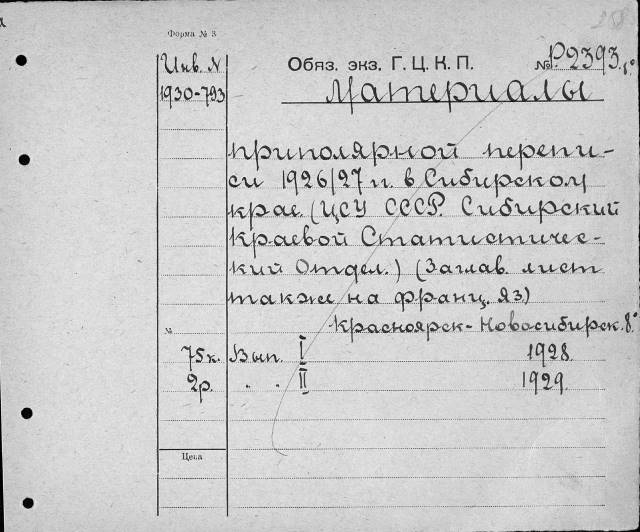 Форма № 3
Инв. N
1930-793
Обяз. экз. Г. Ц. К. П.
№ Р2393
8°
Материалы
приполярной перепи-
си 1926/27 гг. в Сибирском
крае. (ЦСУ СССР. Сибирский
Краевой Статистичес-
кий Отдел.) (Заглав. лист
также на франц. яз)
№
Красноярск-Новосибирск. 8°
75к. Вып. I 1928.
2р. . . II 1929.
Цена